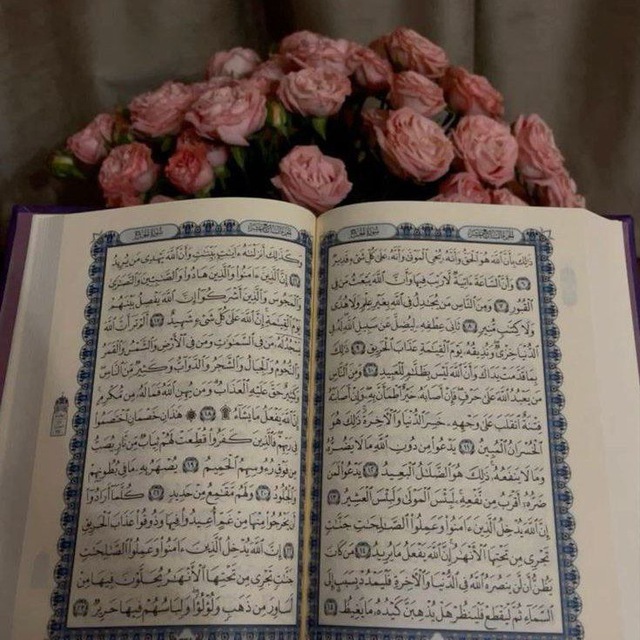 الجُزْءُ السَّابِعَ عَشَرَ سُورَةُ الحَجِّ
ذَٰلِكَ بِأَنَّ ٱللَّهَ هُوَ ٱلْحَقُّ وَأَنَّهُۥ يُحْىِ ٱلْمَوْتَىٰ وَأَنَّهُۥ عَلَىٰ كُلِّ شَىْءٍ قَدِيرٌ
٦ وَأَنَّ ٱلسَّاعَةَ ءَاتِيَةٌ لَّا رَيْبَ فِيهَا وَأَنَّ ٱللَّهَ يَبْعَثُ مَن فِى
ٱلْقُبُورِ ٧ وَمِنَ ٱلنَّاسِ مَن يُجَٰدِلُ فِى ٱللَّهِ بِغَيْرِ عِلْمٍ وَلَا هُدًى
وَلَا كِتَٰبٍ مُّنِيرٍ ٨ ثَانِىَ عِطْفِهِۦ لِيُضِلَّ عَن سَبِيلِ ٱللَّهِ لَهُۥ فِى
ٱلدُّنْيَا خِزْىٌ وَنُذِيقُهُۥ يَوْمَ ٱلْقِيَٰمَةِ عَذَابَ ٱلْحَرِيقِ ٩ ذَٰلِكَ
بِمَا قَدَّمَتْ يَدَاكَ وَأَنَّ ٱللَّهَ لَيْسَ بِظَلَّٰمٍ لِّلْعَبِيدِ ١٠ وَمِنَ ٱلنَّاسِ
مَن يَعْبُدُ ٱللَّهَ عَلَىٰ حَرْفٍ فَإِنْ أَصَابَهُۥ خَيْرٌ ٱطْمَأَنَّ بِهِۦ وَإِنْ أَصَابَتْهُ
فِتْنَةٌ ٱنقَلَبَ عَلَىٰ وَجْهِهِۦ خَسِرَ ٱلدُّنْيَا وَٱلْءَاخِرَةَ ذَٰلِكَ هُوَ
ٱلْخُسْرَانُ ٱلْمُبِينُ ١١ يَدْعُوا۟ مِن دُونِ ٱللَّهِ مَا لَا يَضُرُّهُۥ
وَمَا لَا يَنفَعُهُۥ ذَٰلِكَ هُوَ ٱلضَّلَٰلُ ٱلْبَعِيدُ ١٢ يَدْعُوا۟ لَمَن
ضَرُّهُۥٓ أَقْرَبُ مِن نَّفْعِهِۦ لَبِئْسَ ٱلْمَوْلَىٰ وَلَبِئْسَ ٱلْعَشِيرُ ١٣
إِنَّ ٱللَّهَ يُدْخِلُ ٱلَّذِينَ ءَامَنُوا۟ وَعَمِلُوا۟ ٱلصَّٰلِحَٰتِ جَنَّٰتٍ
تَجْرِى مِن تَحْتِهَا ٱلْأَنْهَٰرُ إِنَّ ٱللَّهَ يَفْعَلُ مَا يُرِيدُ ١٤ مَن كَانَ
يَظُنُّ أَن لَّن يَنصُرَهُ ٱللَّهُ فِى ٱلدُّنْيَا وَٱلْءَاخِرَةِ فَلْيَمْدُدْ بِسَبَبٍ إِلَى
ٱلسَّمَآءِ ثُمَّ لْيَقْطَعْ فَلْيَنظُرْ هَلْ يُذْهِبَنَّ كَيْدُهُۥ مَا يَغِيظُ ١٥
الجُزْءُ السَّابِعَ عَشَرَ سُورَةُ الحَجِّ
وَكَذَٰلِكَ أَنزَلْنَٰهُ ءَايَٰتٍۭ بَيِّنَٰتٍ وَأَنَّ ٱللَّهَ يَهْدِى مَن يُرِيدُ
١٦ إِنَّ ٱلَّذِينَ ءَامَنُوا۟ وَٱلَّذِينَ هَادُوا۟ وَٱلصَّٰبِـِٔينَ وَٱلنَّصَٰرَىٰ
وَٱلْمَجُوسَ وَٱلَّذِينَ أَشْرَكُوٓا۟ إِنَّ ٱللَّهَ يَفْصِلُ بَيْنَهُمْ
يَوْمَ ٱلْقِيَٰمَةِ إِنَّ ٱللَّهَ عَلَىٰ كُلِّ شَىْءٍ شَهِيدٌ ١٧ أَلَمْ تَرَ أَنَّ ٱللَّهَ
يَسْجُدُ لَهُۥ مَن فِى ٱلسَّمَٰوَٰتِ وَمَن فِى ٱلْأَرْضِ وَٱلشَّمْسُ وَٱلْقَمَرُ
وَٱلنُّجُومُ وَٱلْجِبَالُ وَٱلشَّجَرُ وَٱلدَّوَآبُّ وَكَثِيرٌ مِّنَ ٱلنَّاسِ
وَكَثِيرٌ حَقَّ عَلَيْهِ ٱلْعَذَابُ وَمَن يُهِنِ ٱللَّهُ فَمَا لَهُۥ مِن مُّكْرِمٍ
إِنَّ ٱللَّهَ يَفْعَلُ مَا يَشَآءُ ۩ ١٨ ۞ هَٰذَانِ خَصْمَانِ ٱخْتَصَمُوا۟
فِى رَبِّهِمْ فَٱلَّذِينَ كَفَرُوا۟ قُطِّعَتْ لَهُمْ ثِيَابٌ مِّن نَّارٍ يُصَبُّ
مِن فَوْقِ رُءُوسِهِمُ ٱلْحَمِيمُ ١٩ يُصْهَرُ بِهِۦ مَا فِى بُطُونِهِمْ
وَٱلْجُلُودُ ٢٠ وَلَهُم مَّقَٰمِعُ مِنْ حَدِيدٍ ٢١ كُلَّمَآ أَرَادُوٓا۟
أَن يَخْرُجُوا۟ مِنْهَا مِنْ غَمٍّ أُعِيدُوا۟ فِيهَا وَذُوقُوا۟ عَذَابَ ٱلْحَرِيقِ
٢٢ إِنَّ ٱللَّهَ يُدْخِلُ ٱلَّذِينَ ءَامَنُوا۟ وَعَمِلُوا۟ ٱلصَّٰلِحَٰتِ
جَنَّٰتٍ تَجْرِى مِن تَحْتِهَا ٱلْأَنْهَٰرُ يُحَلَّوْنَ فِيهَا مِنْ
أَسَاوِرَ مِن ذَهَبٍ وَلُؤْلُؤًا وَلِبَاسُهُمْ فِيهَا حَرِيرٌ ٢٣